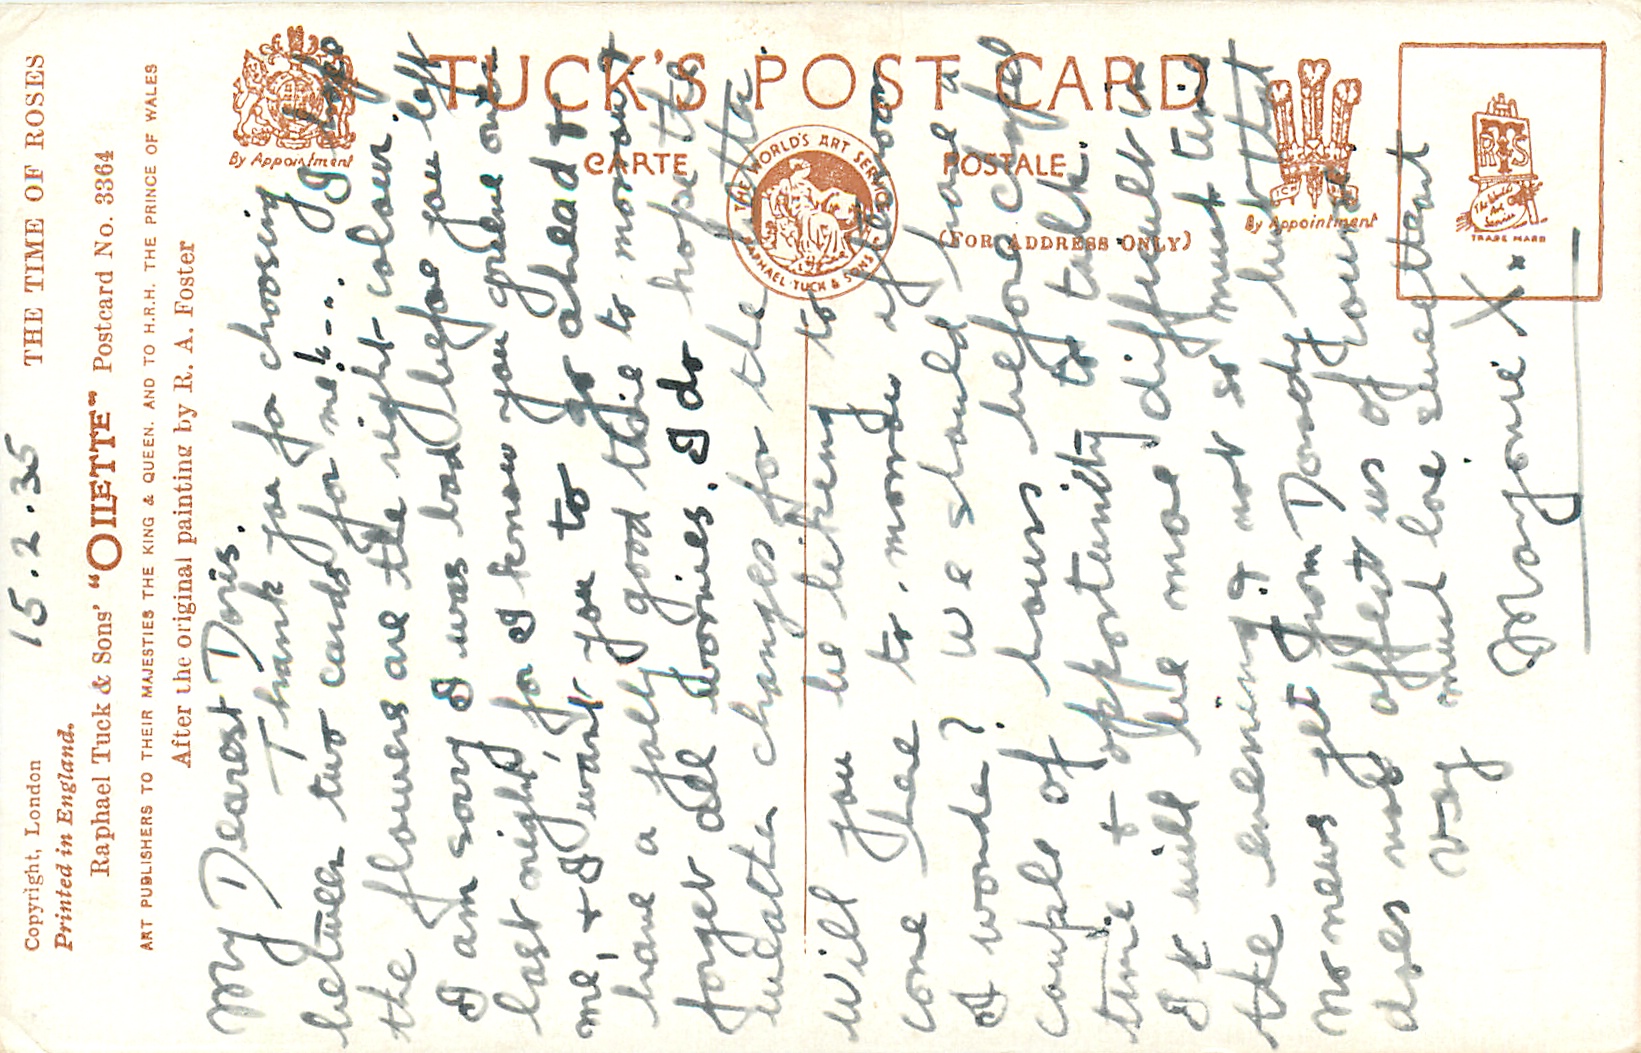 15.2.35
Copyright, London
THE TIME OF ROSES
Printed in England.
Raphael Tuck & Sons' "OILETTE" Postcard No. 3364
ART PUBLISHERS TO THEIR MAJESTIES THE KING & QUEEN. AND TO H.R.H. THE PRINCE OF WALES
After the original painting by R. A. Foster
By Appointment
TUCK'S POST CARD
CARTE POSTALE
(FOR ADDRESS ONLY)
THE WORLD'S ART SERVICE
RAPHAEL TUCK & SONS
By Appointment
The World's
Art
Service
TRADE MARK
My Dearest Doris.
Thank you for choosing
between two cards for me!--. I hope
the flowers are the right colour.
I am sorry I was bad before you left
last night, for I know you grieve over
me, + I want you to go ahead &
have a jolly good time to-morrow &
forget all worries. I do hope the
weather changes for the better
Will you be liking to
come here to-morrow
I wonder? We should have a
couple of hours before
time + opportunity to talk.
It will be more difficult in
the evening, not so much time
No news yet from Donody but that
does not affect us of course.
Very much love sweetheart
Marjorie X.